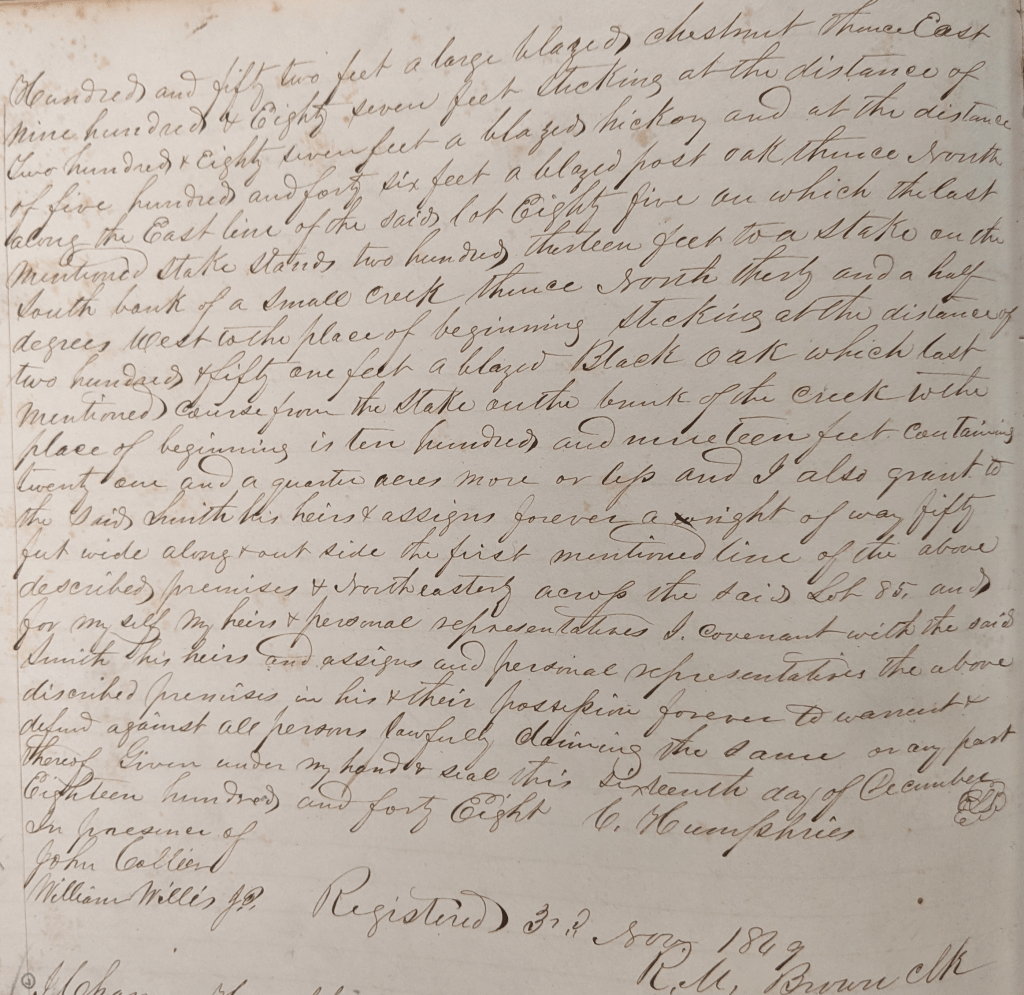 Hundred and fifty two feet a large blazed chestnut thence East
nine hundred & Eighty seven feet sticking at the distance of
two hundred & Eighty seven feet a blazed hickory and at the distance
of five hundred and forty six feet a blazed post oak thence North
along the East line of the said lot Eighty five on which the last
mentioned stake stands two hundred thirteen feet to a stake on the
South bank of a small creek thence North thirty and a half
degrees West to the place of beginning sticking at the distance of
two hundred & fifty one feet a blazed Black oak which last
mentioned course from the stake on the bank of the creek to the
place of beginning is ten hundred and nineteen feet. containing
twenty one and a quarter acres more or less and I also grant to
the said Smith his heirs & assigns forever a right of way fifty
feet wide along & out side the first mentioned line of the above
described premises & North easterly across the said Lot 85, and
for my self my heirs & personal representatives I. covenant with the said
Smith his heirs and assigns and personal representatives the above
discribed premises in his & their possession forever to warrent &
defend against all persons lawfully claiming the same or any part
thereof Given under my hand & seal this sixteenth day of Decumber
Eighteen hundred and forty Eight C. Humphries
In presence of
John Collier
William Willis JP.
Registered 3rd Nov 1849
R. M. Brown Clk